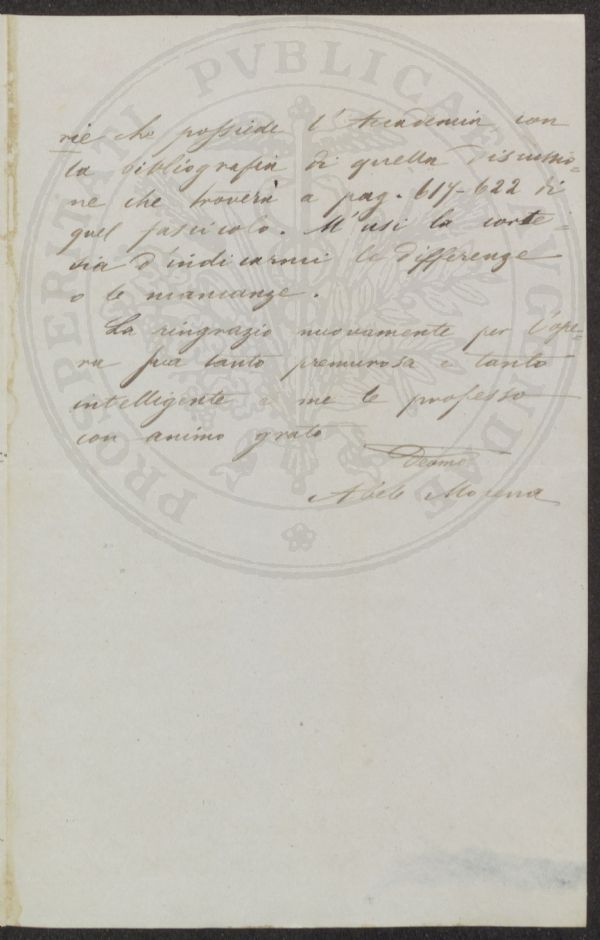 rie che possiede l'Accademia, con
la bibliografia di quella discussio=
ne che troverà a pag. 617-622 di
quel fascicolo. M'usi la corte=
sia d'indicarmi le differenze
o le mancanze.
La ringrazio nuovamente per l'ope=
ra sua tanto premurosa e tanto
intelligente e me le professo
con animo grato
Devmo
Morena
PROSPERITATI PVBLICAE AVGENDAE